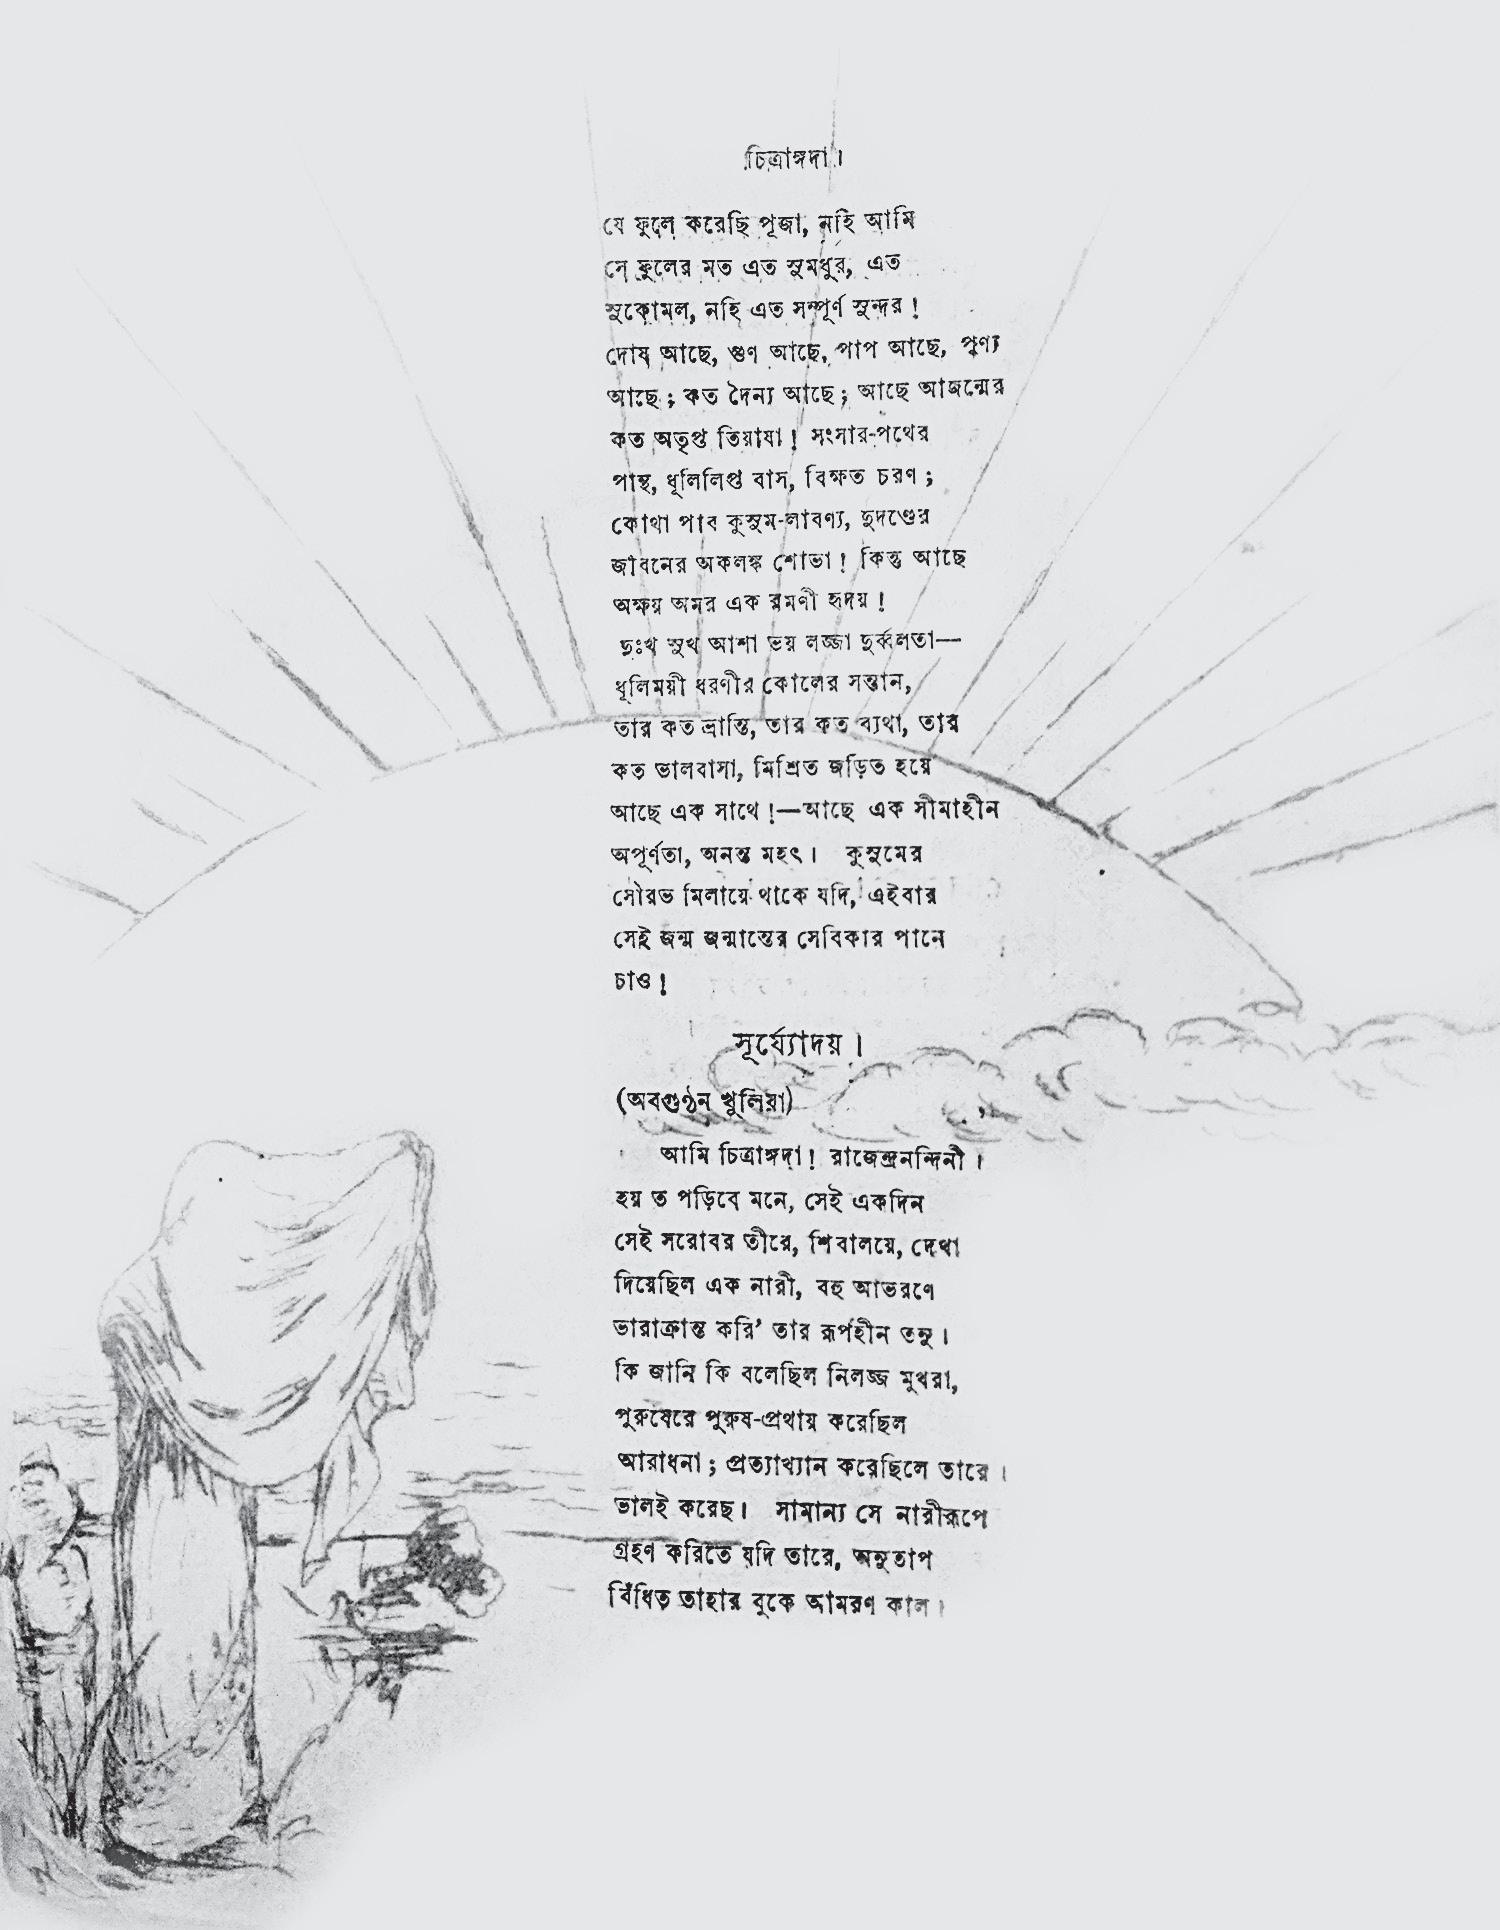 চিত্রাঙ্গদা।
যে ফুলে করেছি পূজা, নহি আমি
সে ফুলের মত এত সুমধুর, এত
সুকোমল, নহি এত সম্পূর্ণ সুন্দর!
দোষ আছে, গুণ আছে, পাপ আছে, পুণ্য
আছে; কত দৈন্য আছে; আছে আজন্মের
কত অতৃপ্ত তিয়াষা! সংসার-পথের
পান্থ, ধূলিলিপ্ত বাস, বিক্ষত চরণ;
কোথা পাব কুসুম-লাবণ্য, দুদণ্ডের
জীবনের অকলঙ্ক শোভা! কিন্তু আছে
অক্ষয় অমর এক রমণী হৃদয়!
দুঃখ সুখ আশা ভয় লজ্জা দুর্ব্বলতা—
ধূলিময়ী ধরণীর কোলের সন্তান,
তার কত ভ্রান্তি, তার কত ব্যথা, তার
কত ভালবাসা, মিশ্রিত জড়িত হয়ে
আছে এক সাথে!—আছে এক সীমাহীন
অপূর্ণতা, অনন্ত মহৎ। কুসুমের
সৌরভ মিলায়ে থাকে যদি, এইবার
সেই জন্ম জন্মান্তের সেবিকার পানে
চাও!
সূর্য্যোদয়।
(অবগুণ্ঠন খুলিয়া)
আমি চিত্রাঙ্গদা! রাজেন্দ্রনন্দিনী।
হয় ত পড়িবে মনে, সেই একদিন
সেই সরোবর তীরে, শিবালয়ে, দেখা
দিয়েছিল এক নারী, বহু আভরণে
ভারাক্রান্ত করি’ তার রূপহীন তনু।
কি জানি কি বলেছিল নিলজ্জ মুখরা,
পুরুষেরে পুরুষ-প্রথায় করেছিল
আরাধনা; প্রত্যাখ্যান করেছিলে তারে।
ভালই করেছ। সামান্য সে নারীরূপে
গ্রহণ করিতে যদি তারে, অনুতাপ
বিঁধিত তাহার বুকে আমরণ কাল।